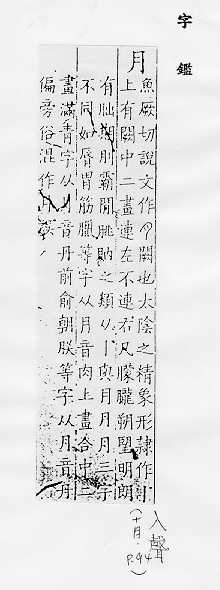 字鑑
月
魚厥切說文作闕也太陰之精象形隸作
上有闕中二畫連左不連右凡朦朧朔望明朗
有朏期霸閒朓朒之類从與月月月三字
不同如脣胃筋臘等字从月音肉上畫合中二
畫滿青字从音丹前俞朝朕等字从月音舟
偏旁俗混作
入聲
(十月. P.94)